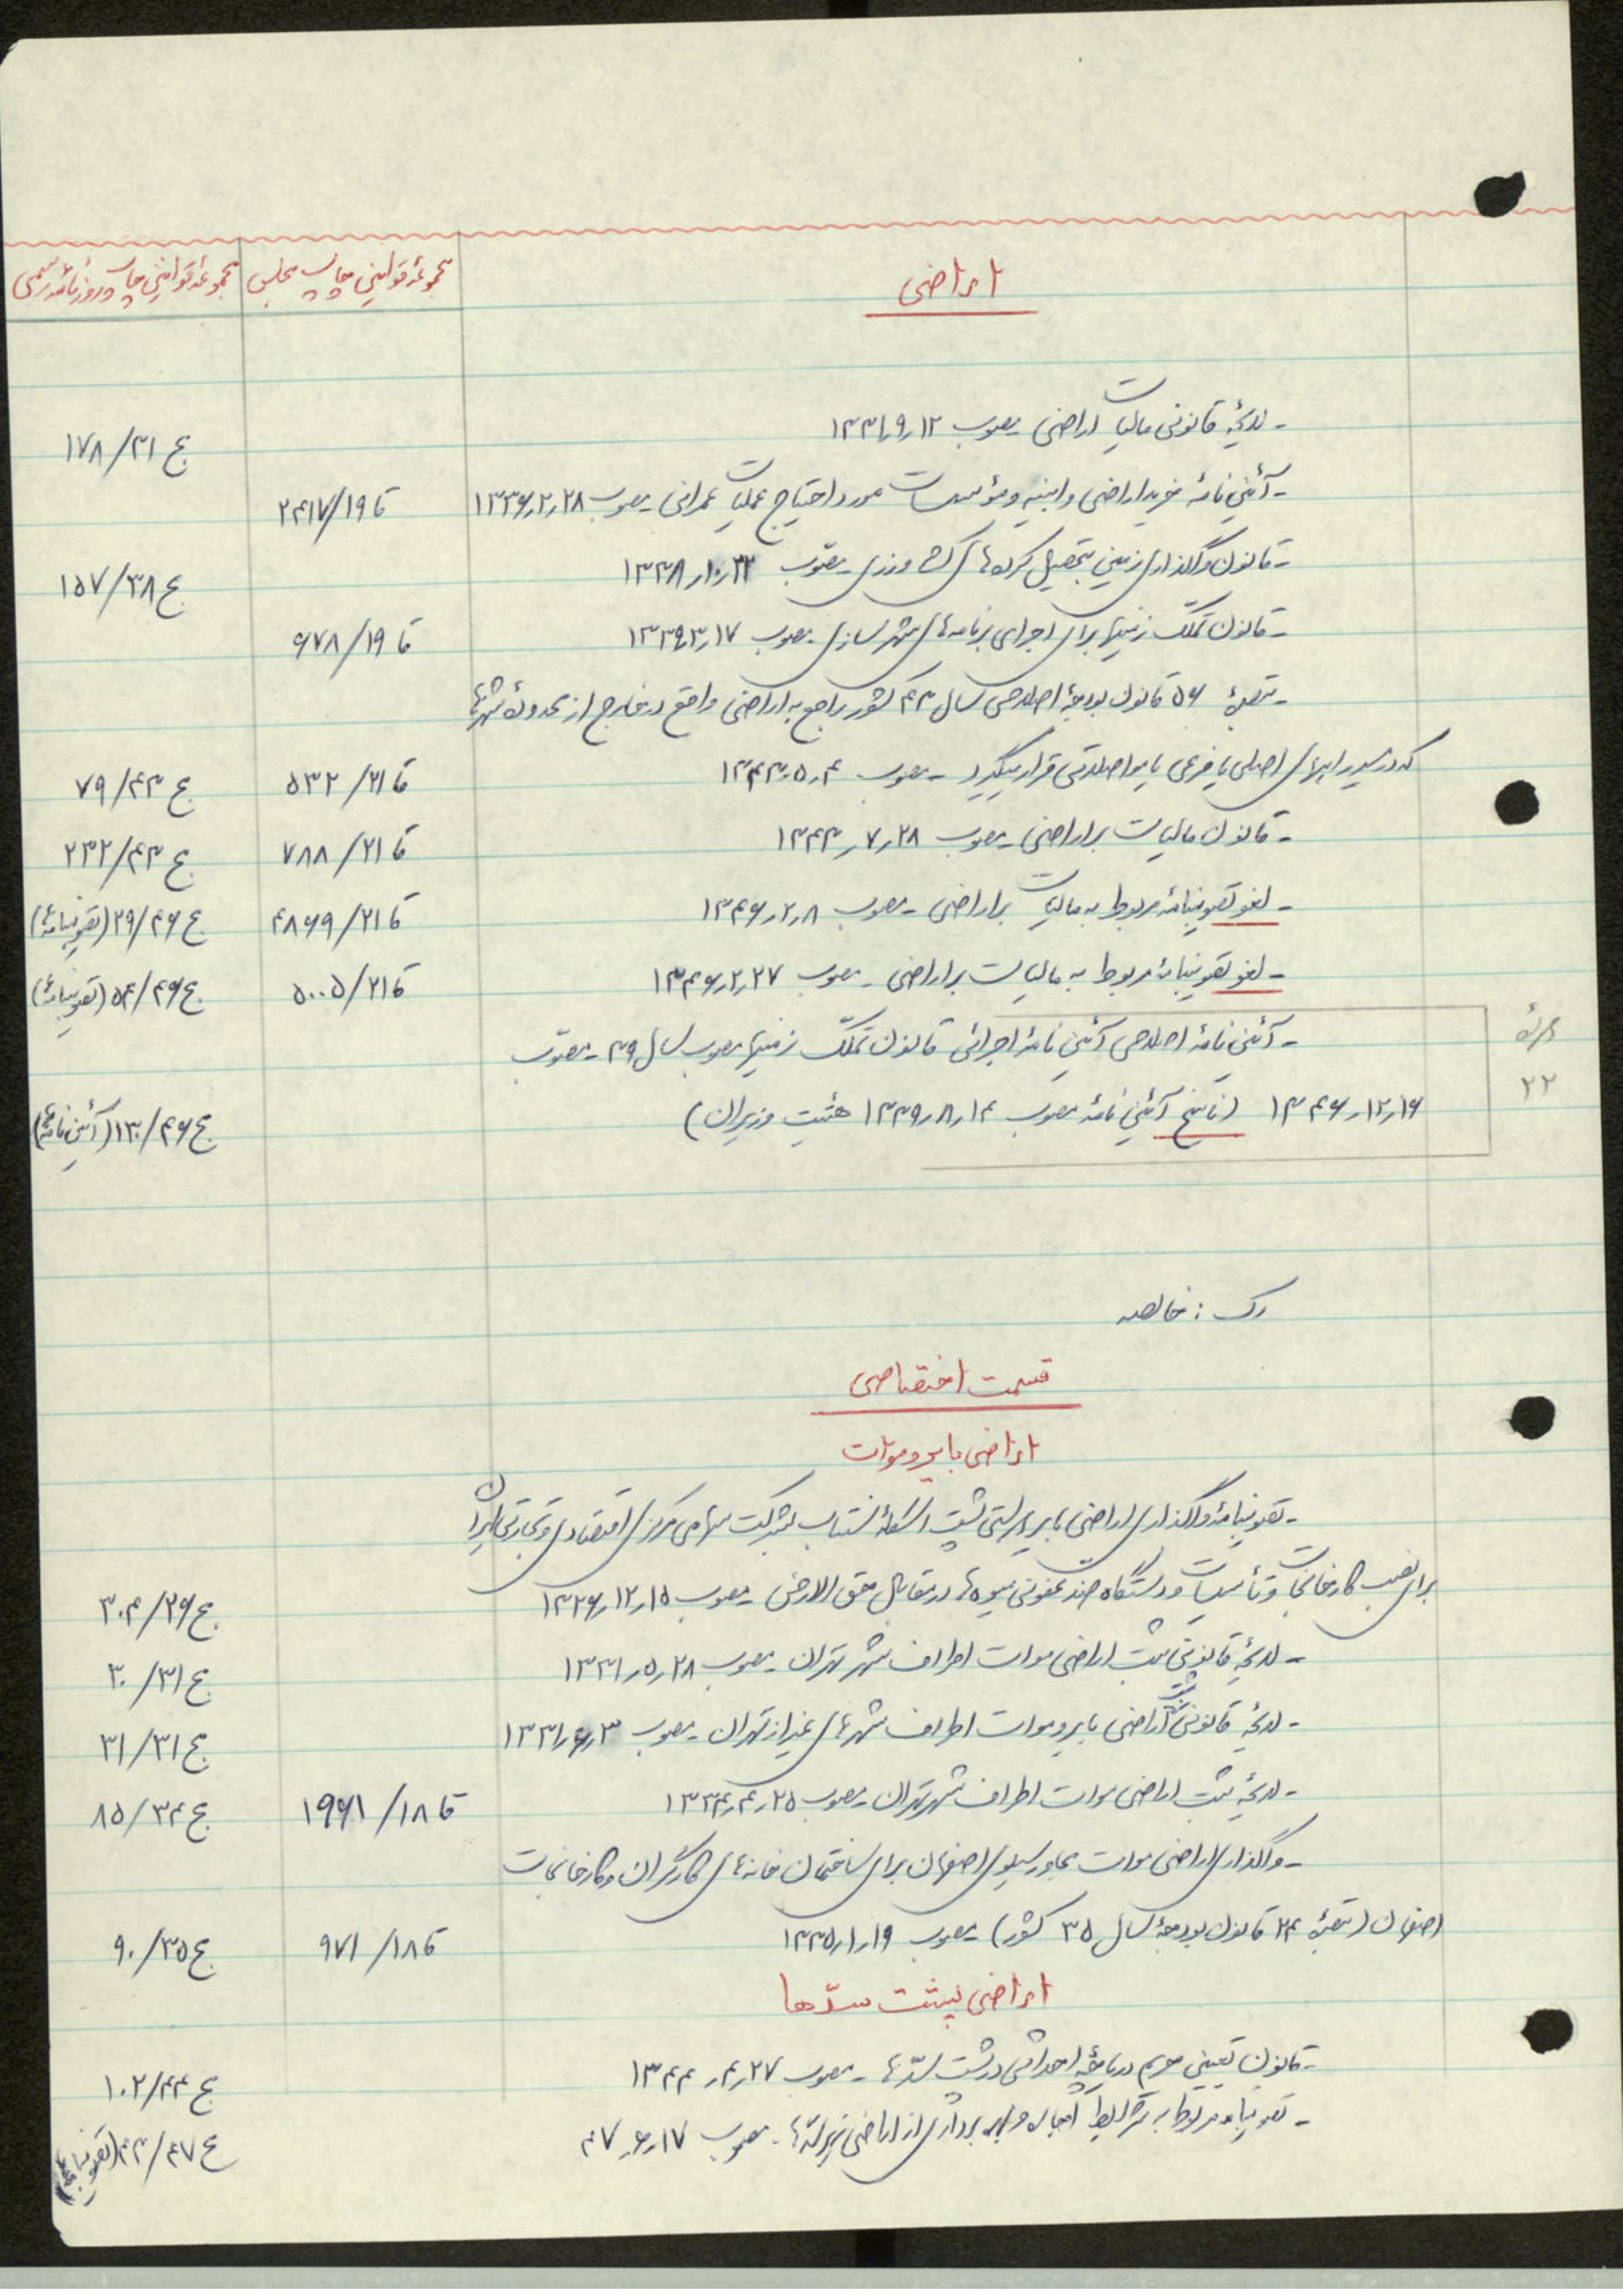 اراضی
مجموعهٔ قوانین چاپ مجلس
مجموعهٔ قوانین چاپ روزنامهٔ رسمی
- لایحهٔ قانونی مالیات اراضی مصوب ۱۳۳۱٫۹٫۱۲
ج ۳۱/۱۷۸
- آئین‌نامهٔ خرید اراضی و ابنیه و مؤسسات مورد احتیاج عملیات عمرانی مصوب ۱۳۳۶٫۲٫۲۸
قا ۱۹/۲۴۱۷
- قانون واگذاری زمین بتحصیل کرده‌های کشاورزی مصوّب ۱۳۳۸٫۱۰٫۲۲
ج ۳۸/۱۵۷
- قانون تملّک زمینها برای اجرای برنامه‌های شهرسازی مصوب ۱۳۳۹٫۳٫۱۷
قا ۱۹/۶۷۸
- تبصرهٔ ۵۶ قانون بودجهٔ اصلاحی سال ۴۳ کشور راجع به اراضی واقع در خارج از محدودهٔ شهرها
که در مسیر راههای اصلی یا فرعی یا مواصلاتی قرار میگیرد - مصوب ۱۳۴۳٫۵٫۴
قا ۲۱/۵۳۲
ج ۴۳/۷۹
- قانون مالیات بر اراضی مصوب ۱۳۴۳٫۷٫۲۸
قا ۲۱/۷۸۸
ج ۴۳/۲۳۲
- لغو تصویبنامهٔ مربوط به مالیات بر اراضی - مصوب ۱۳۴۶٫۲٫۸
قا ۲۱/۴۸۶۹
ج ۴۶/۲۹ (تصویبنامه‌ها)
- لغو تصویبنامهٔ مربوط به مالیات بر اراضی - مصوب ۱۳۴۶٫۲٫۲۷
قا ۲۱/۵۰۰۵
ج ۴۶/۵۴ (تصویبنامه‌ها)
- آئین‌نامهٔ اصلاحی آئین‌نامهٔ اجرائی قانون تملّک زمینها مصوب سال ۳۹ - مصوّب
۲۲
۱۳۴۶٫۱۲٫۱۶ (ناسخ آئین‌نامهٔ مصوب ۱۳۳۹٫۸٫۱۴ هئیت وزیران)
ج ۴۶/۱۳۰ (آئین‌نامه‌ها)
رک : خالصه
قسمت اختصاصی
اراضی بایر و موات
- تصویبنامهٔ واگذاری اراضی بایر پشت بشرکت سهامی مرکزی اقتصادی و تجارتی ایران
برای نصب کارخانجات و تأسیسات و دستگاه ضد عفونی میوه‌ها در مقابل حق الارض مصوب ۱۳۲۶٫۱۲٫۱۵
ج ۲۶/۳۰۴
- لایحهٔ قانونی ثبت اراضی موات اطراف شهر تهران - مصوب ۱۳۳۱٫۵٫۲۸
ج ۳۱/۳۰
- لایحهٔ قانونی ثبت اراضی بایر و موات اطراف شهرهای غیر از تهران - مصوب ۱۳۳۱٫۶٫۳
ج ۳۱/۳۱
- لایحهٔ ثبت اراضی موات اطراف شهر تهران مصوب ۱۳۳۴٫۴٫۲۵
قا ۱۸/۱۹۶۱
ج ۳۴/۸۵
- واگذاری اراضی موات مجاور سیلوی اصفهان برای ساختمان خانه‌های کارگران و کارخانجات
اصفهان (تبصرهٔ ۲۴ قانون بودجهٔ سال ۳۵ کشور) مصوب ۱۳۳۵٫۱٫۱۹
قا ۱۸/۹۷۱
ج ۳۵/۹۰
اراضی پشت سدّها
- قانون تعیین حریم دریاچهٔ احداثی در پشت سدّها - مصوب ۱۳۴۴٫۴٫۲۷
ج ۴۴/۱۰۲
- تصویبنامه مربوط به شرایط اجاره و بهره برداری از اراضی زیر سدّها - مصوب ۴۷٫۶٫۱۷
ج ۴۷/۴۳ (تصویبنامه‌ها)